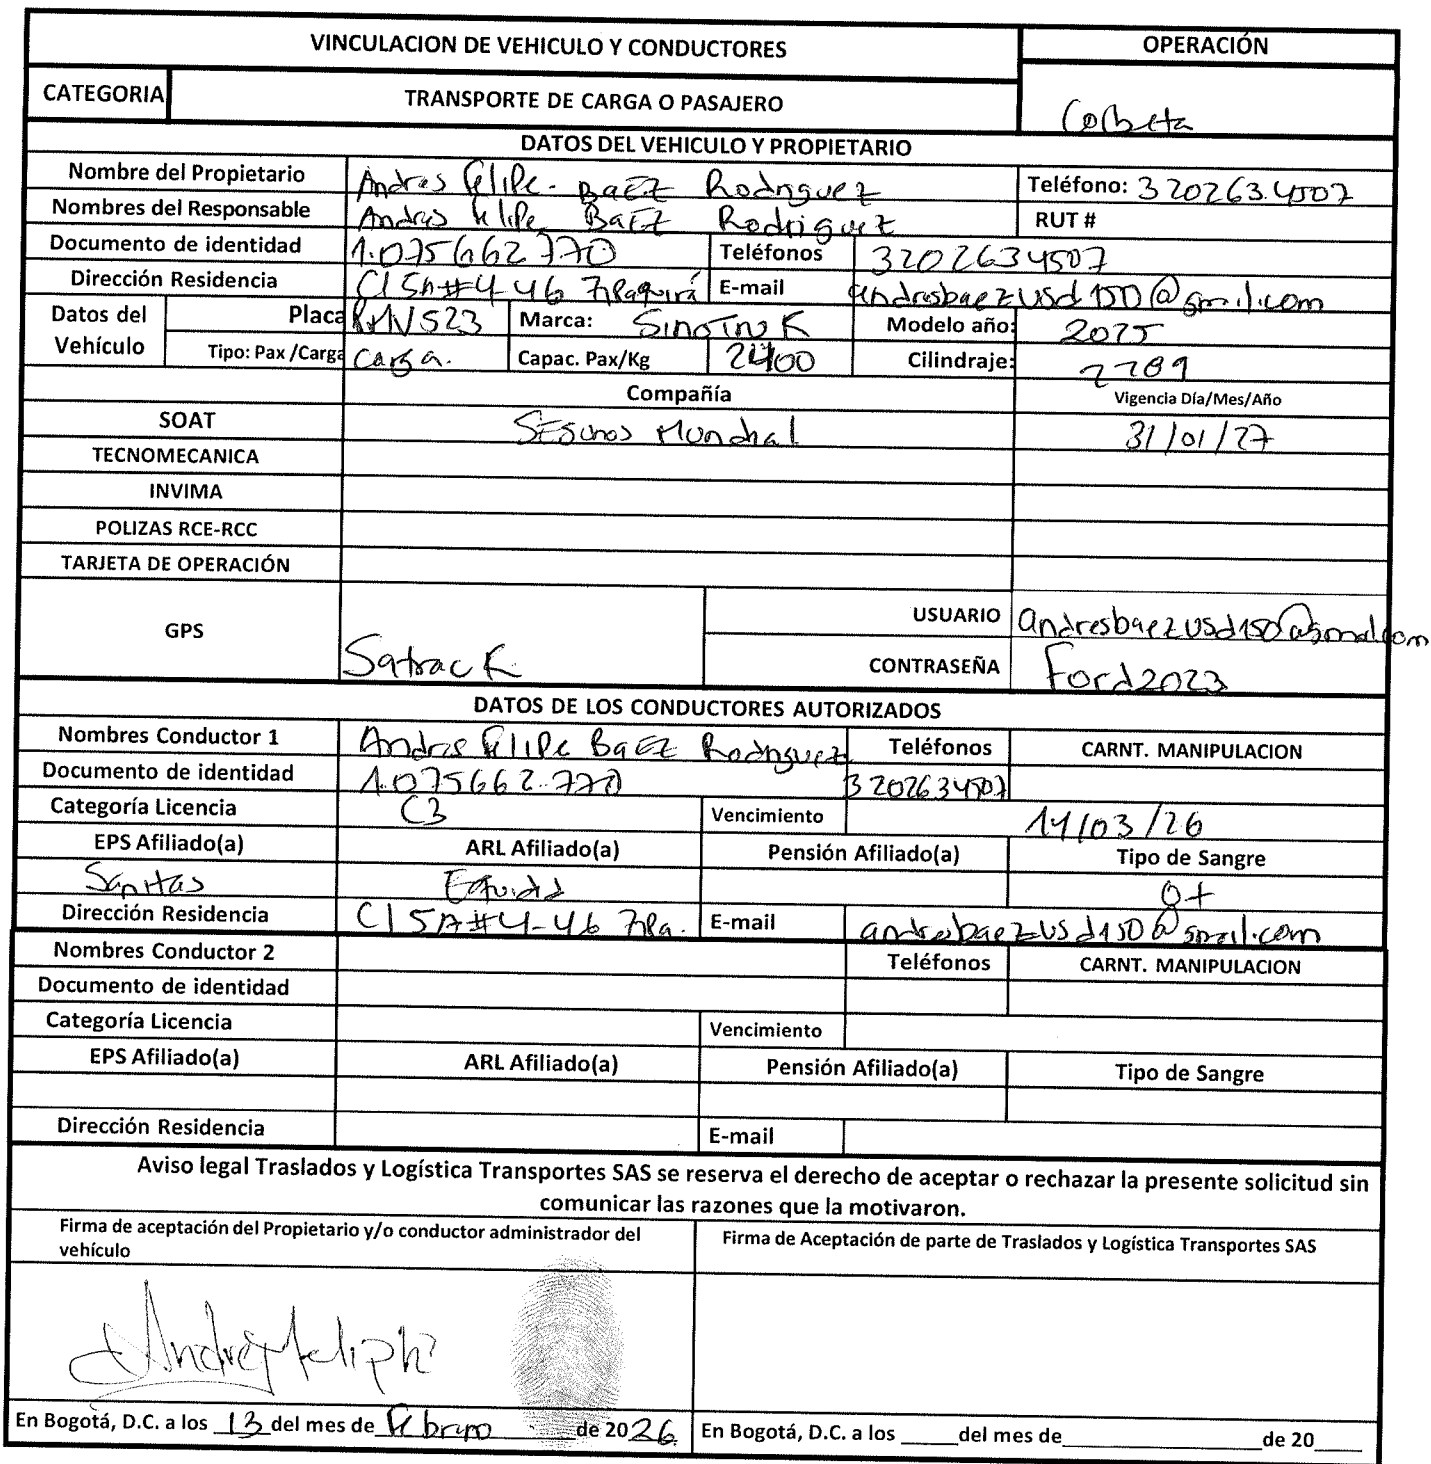 VINCULACION DE VEHICULO Y CONDUCTORES OPERACIÓN
CATEGORIA TRANSPORTE DE CARGA O PASAJERO Corbeta
DATOS DEL VEHICULO Y PROPIETARIO
Nombre del Propietario Andres felipe. BaEz Rodriguez Teléfono: 320263.4507
Nombres del Responsable Andres felipe BaEz Rodriguez RUT #
Documento de identidad 1.075662.770 Teléfonos 3202634507
Dirección Residencia Cl 5A#4-46 Zipaquirá E-mail andresbaezusd150@gmail.com
Datos del Vehículo Placa Marca: SinoTruk Modelo año: 2025
Tipo: Pax /Carga Carga. Capac. Pax/Kg 2400 Cilindraje:
Compañía Vigencia Día/Mes/Año
SOAT SEguros Mundial 31/01/27
TECNOMECANICA
INVIMA
POLIZAS RCE-RCC
TARJETA DE OPERACIÓN
GPS Satrack USUARIO andresbaezusd150@gmail.com
CONTRASEÑA Ford2023
DATOS DE LOS CONDUCTORES AUTORIZADOS
Nombres Conductor 1 Andres felipe BaEz Rodriguez Teléfonos CARNT. MANIPULACION
Documento de identidad 1.075662.770 3202634507
Categoría Licencia C3 Vencimiento /03/26
EPS Afiliado(a) ARL Afiliado(a) Pensión Afiliado(a) Tipo de Sangre
Sanitas Equidad O+
Dirección Residencia Cl 5A#4-46 Zipa. E-mail andresbaezusd150@gmail.com
Nombres Conductor 2 Teléfonos CARNT. MANIPULACION
Documento de identidad
Categoría Licencia Vencimiento
EPS Afiliado(a) ARL Afiliado(a) Pensión Afiliado(a) Tipo de Sangre
Dirección Residencia E-mail
Aviso legal Traslados y Logística Transportes SAS se reserva el derecho de aceptar o rechazar la presente solicitud sin
comunicar las razones que la motivaron.
Firma de aceptación del Propietario y/o conductor administrador del
vehículo
Firma de Aceptación de parte de Traslados y Logística Transportes SAS
En Bogotá, D.C. a los 13 del mes de febrero de 2026 En Bogotá, D.C. a los _____del mes de____________________de 20_____